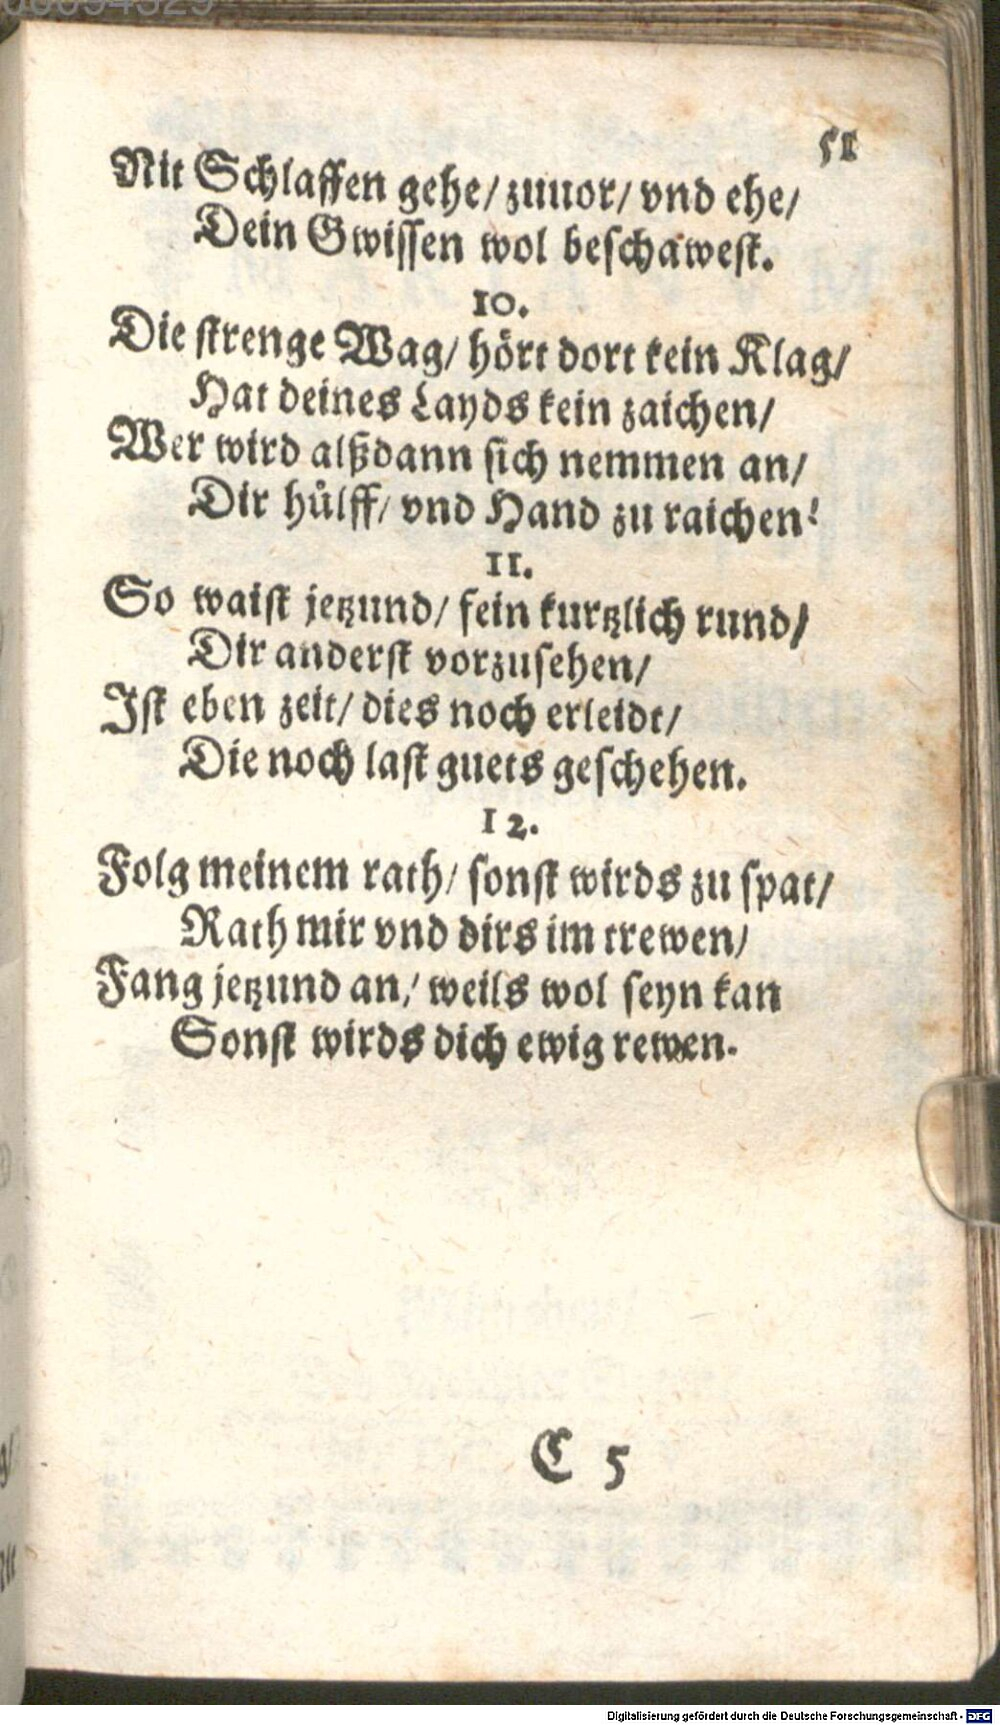 51
Nit Schlaffen gehe/ zuuor/ vnd ehe/
Dein Gwissen wol beschawest.
10.
Die strenge Wag/ hört dort kein Klag/
Hat deines Layds kein zaichen/
Wer wird alßdann sich nemmen an/
Dir hülff/ vnd Hand zu raichen?
11.
So waist jetzund/ fein kurtzlich rund/
Dir anderst vorzusehen/
Ist eben zeit/ dies noch erleidt/
Die noch last guets geschehen.
12.
Folg meinem rath/ sonst wirds zu spat/
Rath mir vnd dirs im trewen/
Fang jetzund an/ weils wol seyn kan
Sonst wirds dich ewig rewen.
C 5
Digitalisierung gefördert durch die Deutsche Forschungsgemeinschaft - DFG